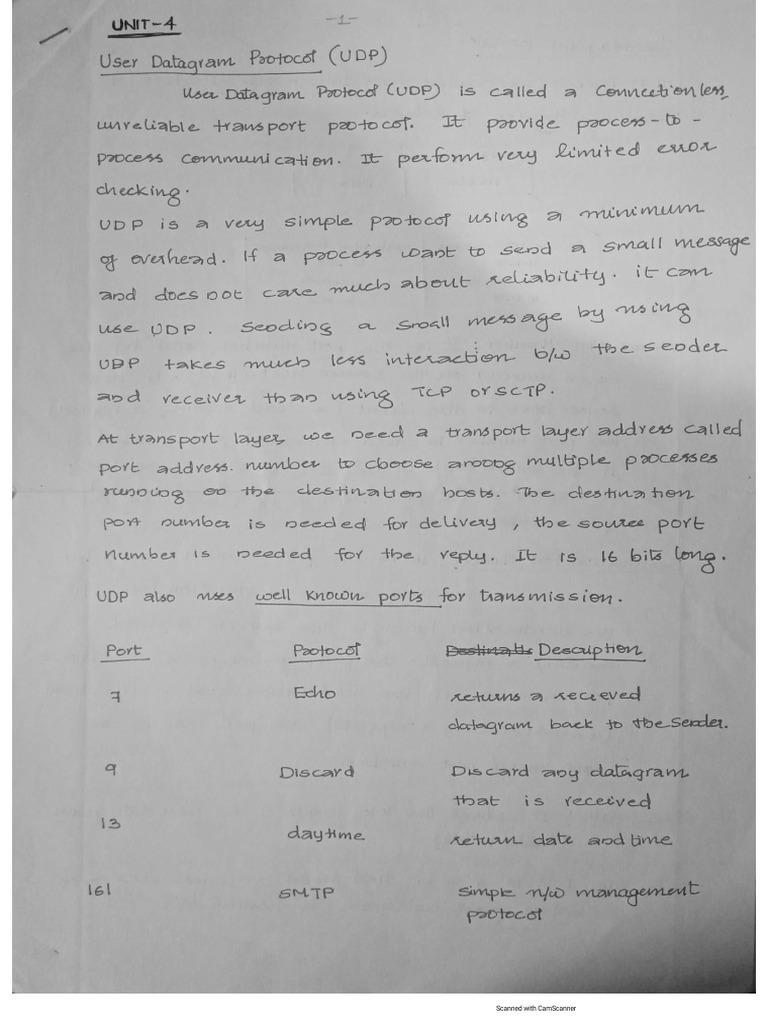 UNIT-4
-1-
User Datagram Protocol (UDP)
User Datagram Protocol (UDP) is called a Connectionless,
unreliable transport protocol. It provide process-to-
process communication. It perform very limited error
checking.
UDP is a very simple protocol using a minimum
of overhead. If a process want to send a small message
and does not care much about reliability. it can
use UDP. Sending a small message by using
UDP takes much less interaction b/w the sender
and receiver than using TCP or SCTP.
At transport layer, we need a transport layer address called
port address. number to choose among multiple processes
running on the destination hosts. The destination
port number is needed for delivery, the source port
number is needed for the reply. It is 16 bits long.
UDP also uses well known ports for transmission.
Port Protocol Destinatis Description
7 Echo returns a recieved
datagram back to the sender.
9 Discard Discard any datagram
that is received
13 daytime return date and time
161 SMTP simple n/w management
protocol
Scanned with CamScanner